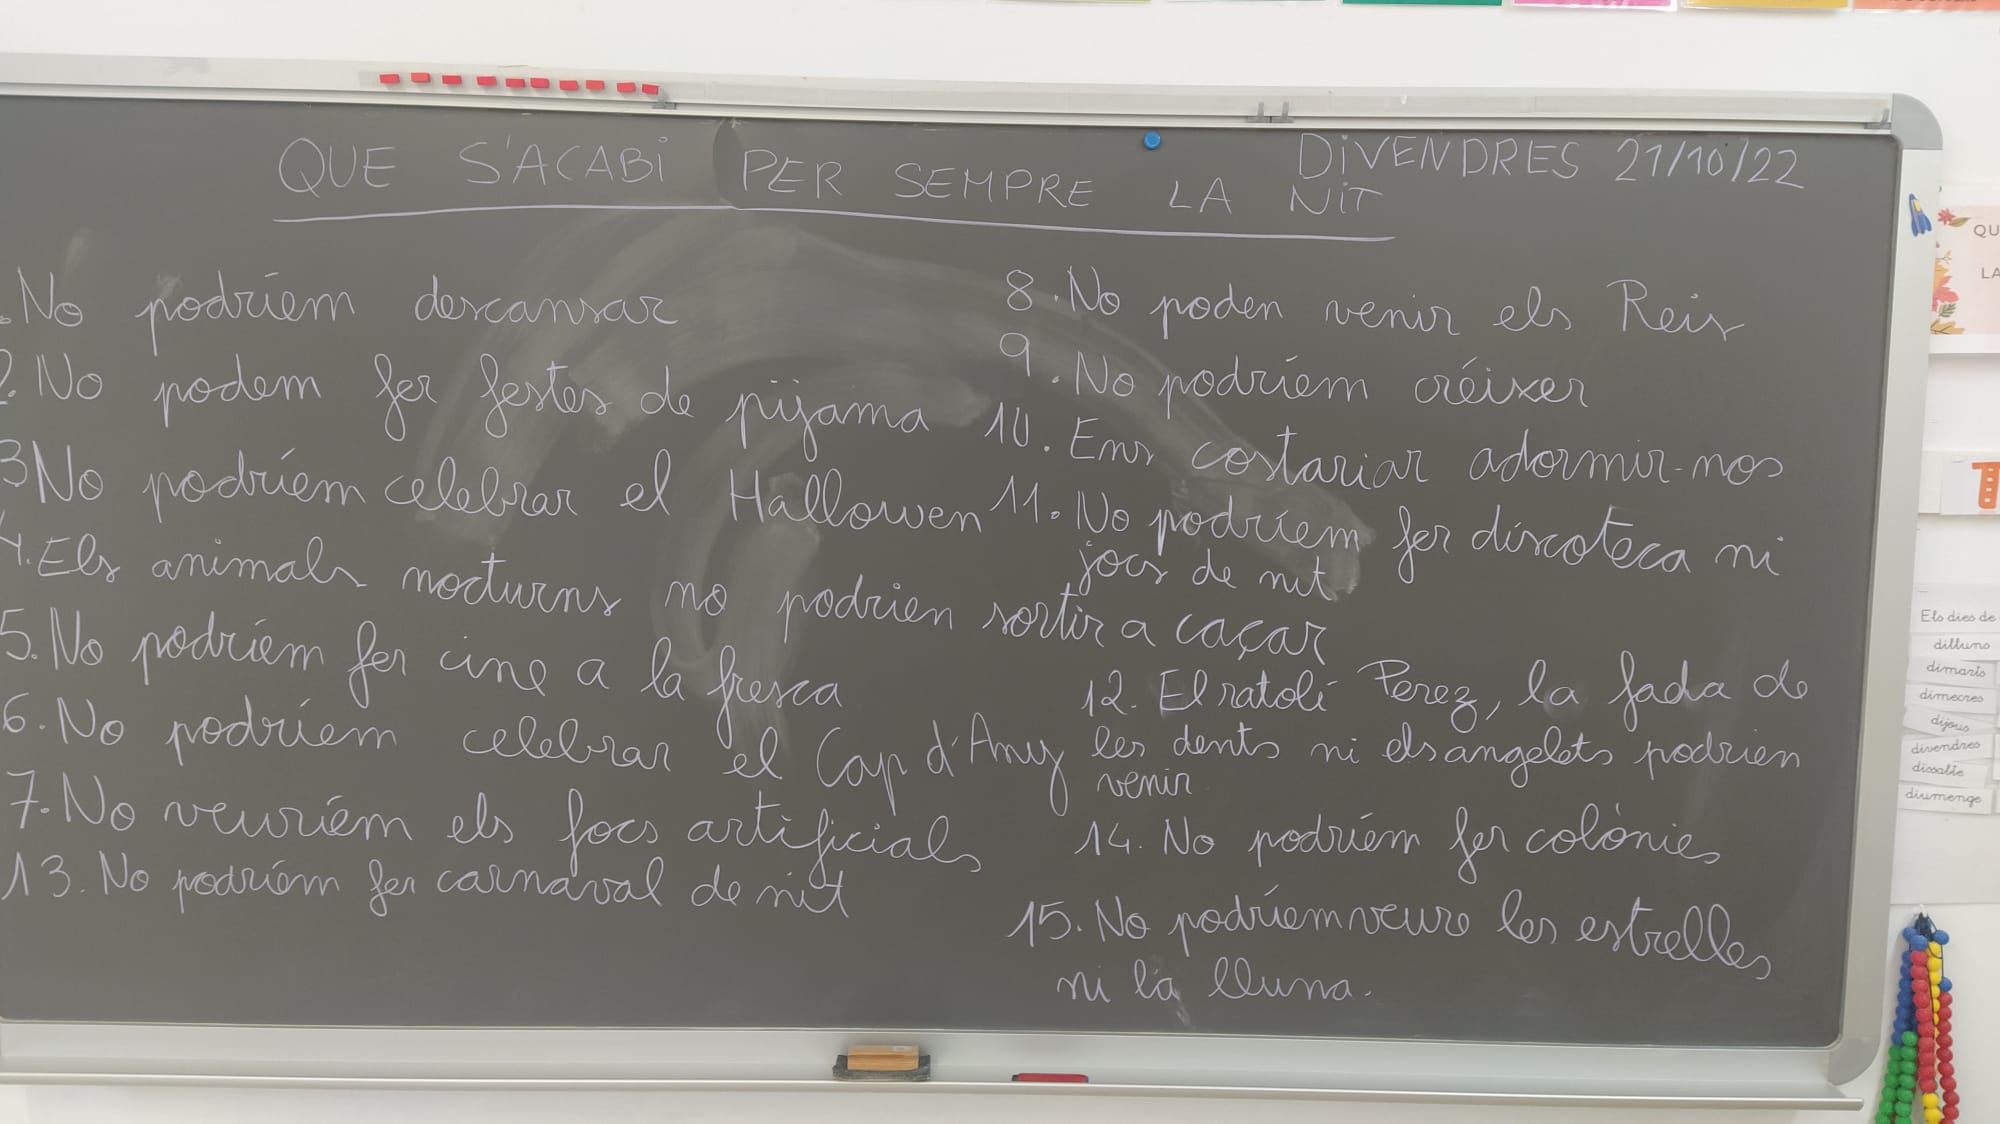 DIVENDRES 21/10/22
QUE S'ACABI PER SEMPRE LA NIT
. No podríem descansar
2. No podem fer festes de pijama
3 No podríem celebrar el Hallowen
4. Els animals nocturns no podrien sortir a caçar
5. No podríem fer cine a la fresca
6. No podríem celebrar el Cap d'Any
7. No veuríem els focs artificials
13. No podríem fer carnaval de nit
8. No poden venir els Reis
9. No podríem créixer
10. Ens costariar adormir-nos
11. No podríem fer discoteca ni
jocs de nit
12. El ratolí Perez, la fada de
les dents ni els angelets podrien
venir
14. No podríem fer colònies
15. No podríem veure les estrelles
ni la lluna.
QU
LA
T
Els dies de
dilluns
dimarts
dimecres
dijous
divendres
dissabte
diumenge